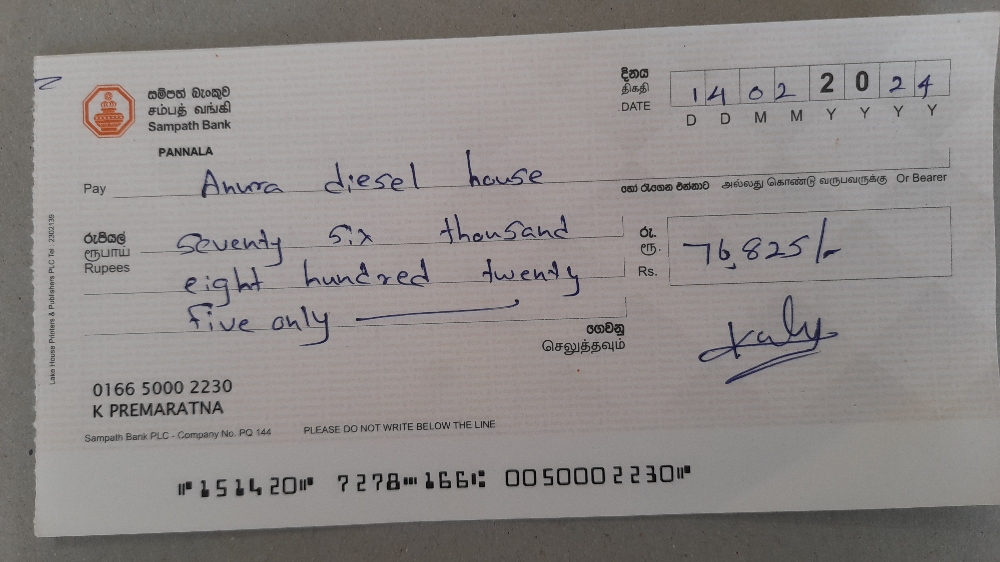 සම්පත් බැංකුව
சம்பத் வங்கி
Sampath Bank
PANNALA
දිනය
திகதி
DATE
14 02 2024
D D M M Y Y Y Y
Pay Anura diesel house
හෝ රැගෙන එන්නාට அல்லது கொண்டு வருபவருக்கு Or Bearer
රුපියල්
ரூபாய்
Rupees
seventy six thousand
eight hundred twenty
five only
රු.
ரூ.
Rs.
76,825/-
ගෙවනු
செலுத்தவும்
0166 5000 2230
K PREMARATNA
Sampath Bank PLC - Company No. PQ 144
PLEASE DO NOT WRITE BELOW THE LINE
Lake House Printers & Publishers PLC Tel : 2302139
⑈151420⑈ 7278⑉166⑆ 0050002230⑈